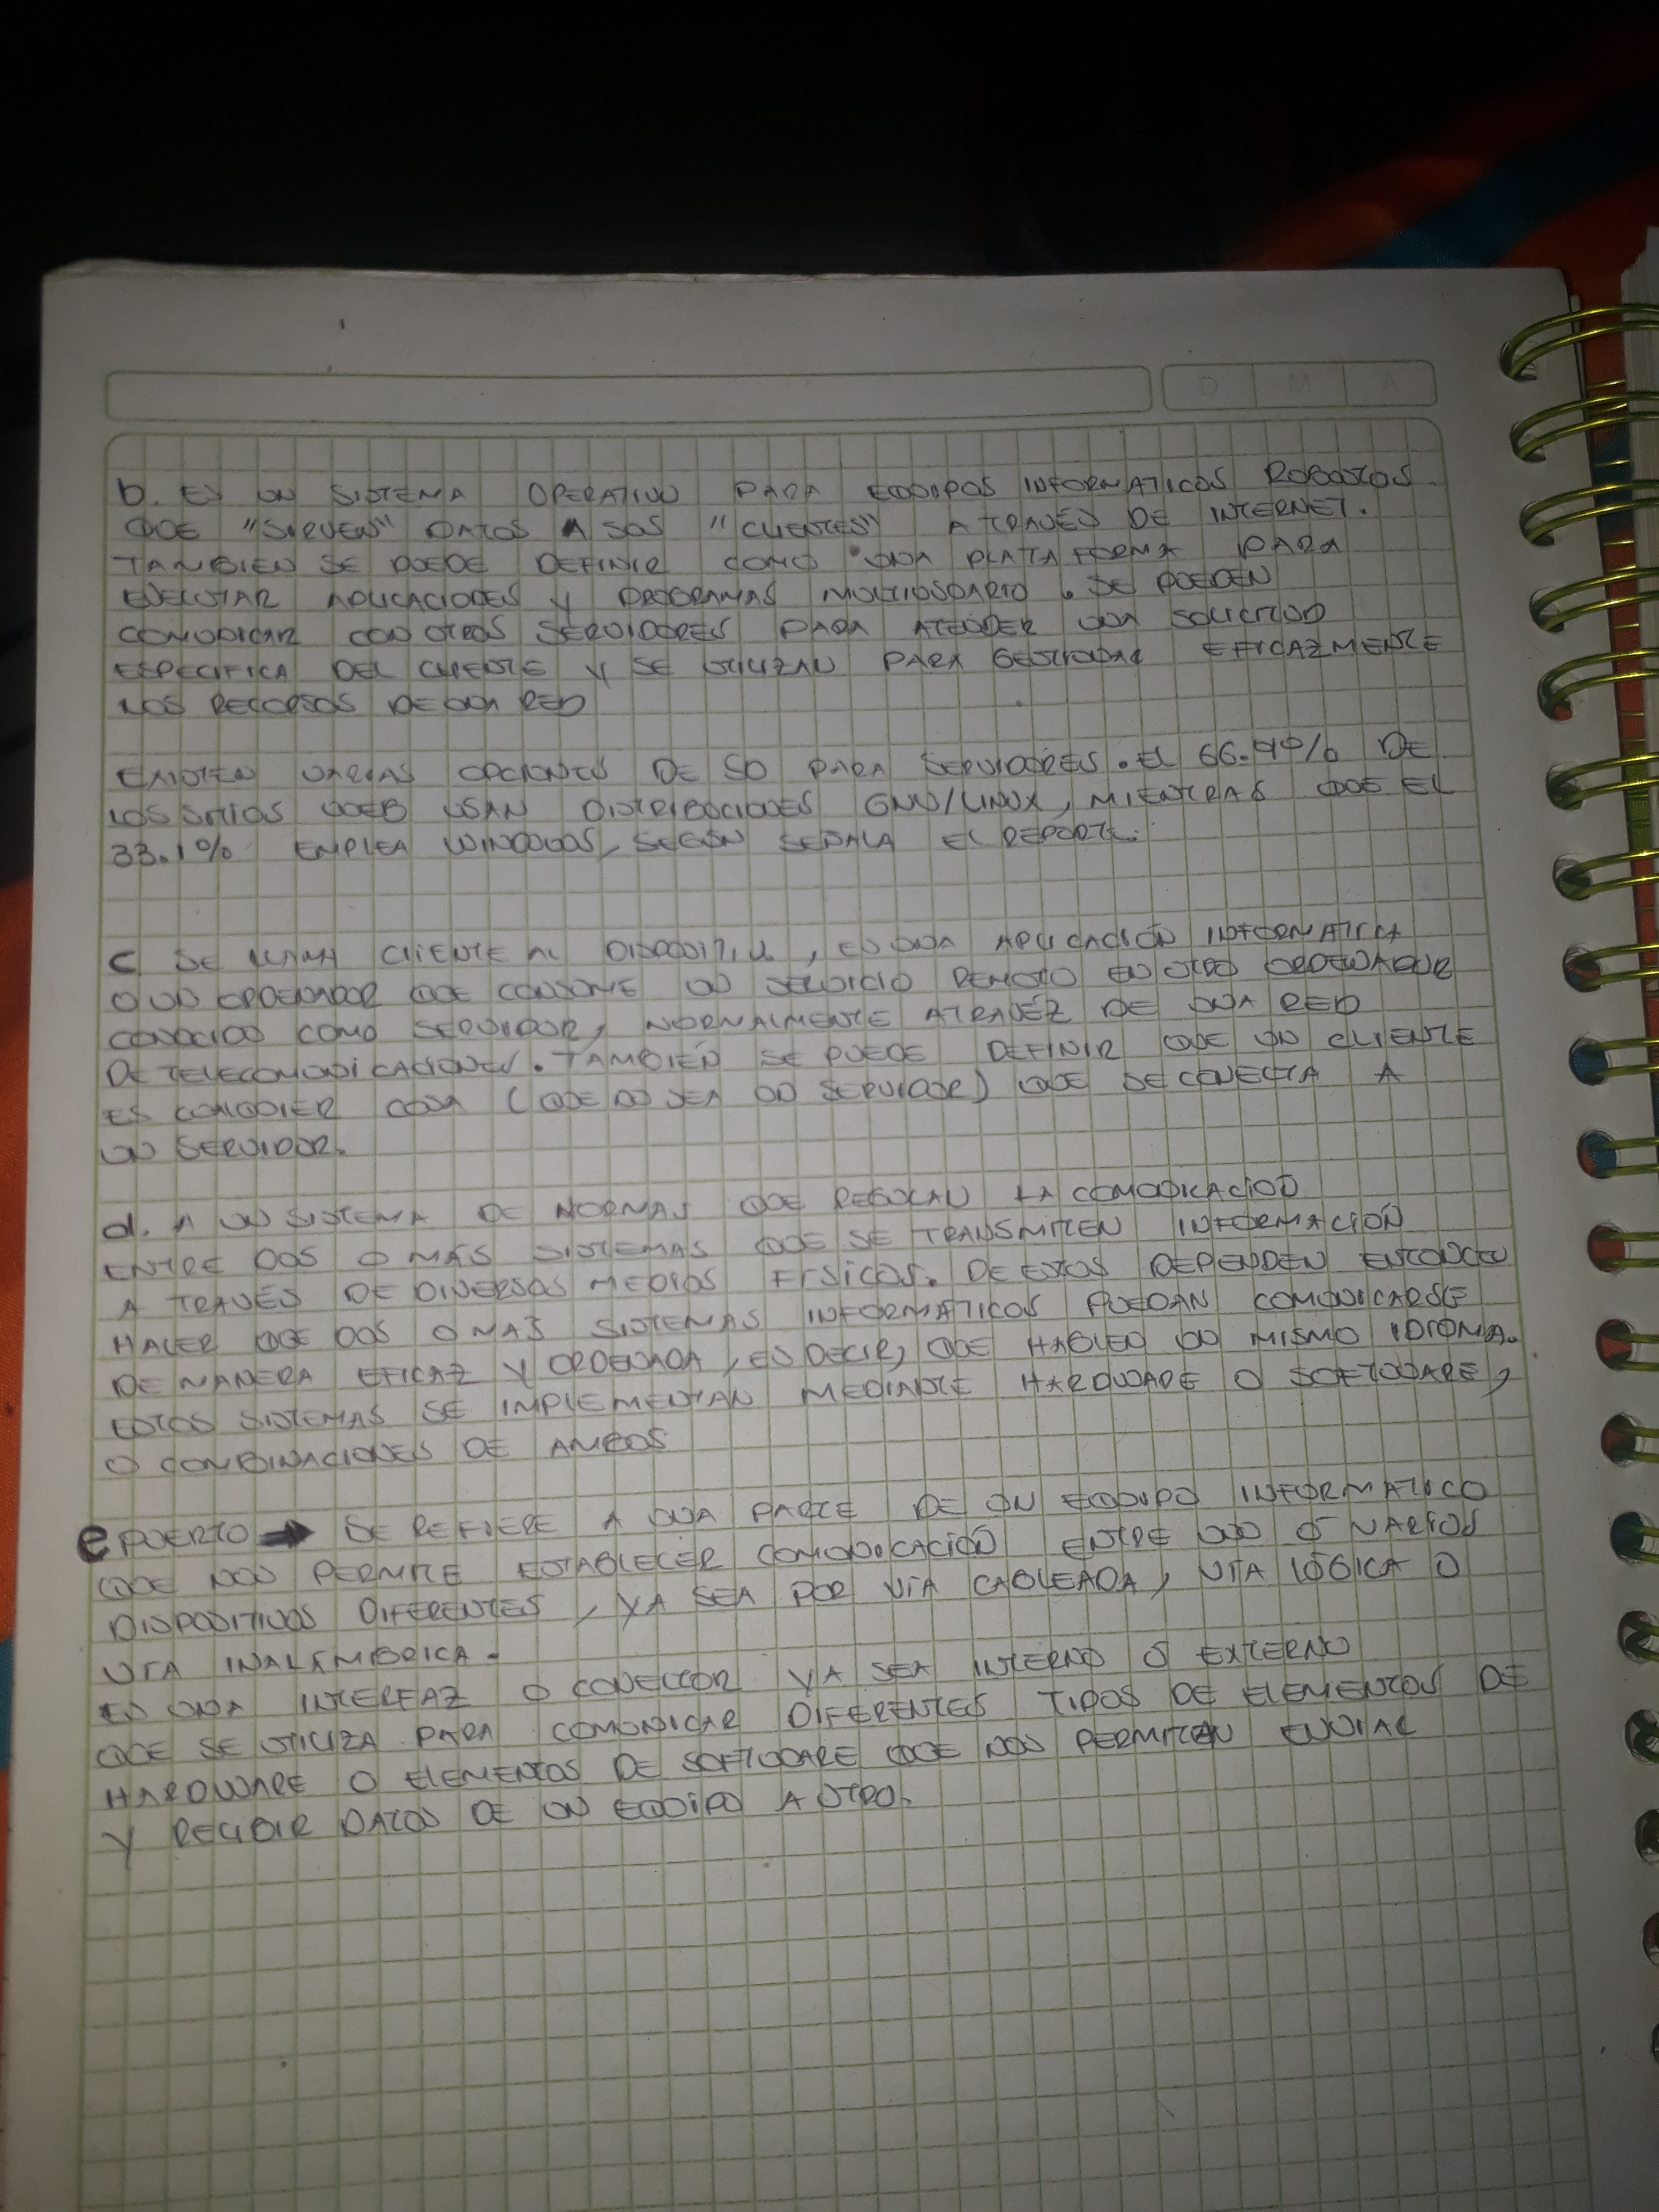 D M A
b. ES UN SISTEMA OPERATIVO PARA EQUIPOS INFORMATICOS ROBUSTOS
QUE "SIRVEN" DATOS A SUS "CLIENTES" A TRAVÉS DE INTERNET.
TAMBIEN SE PUEDE DEFINIR COMO UNA PLATAFORMA PARA
EJECUTAR APLICACIONES Y PROGRAMAS MULTIUSUARIO. SE PUEDEN
COMUNICAR CON OTROS SERVIDORES PARA ATENDER UNA SOLICITUD
ESPECIFICA DEL CLIENTE Y SE UTILIZAN PARA GESTIONAR EFICAZMENTE
LOS RECURSOS DE UNA RED
EXISTEN VARIAS OPCIONES DE SO PARA SERVIDORES. EL 66.9% DE
LOS SITIOS WEB USAN DISTRIBUCIONES GNU/LINUX, MIENTRAS QUE EL
33.1% EMPLEA WINDOWS, SEGÚN SEÑALA EL REPORTE.
C SE LLAMA CLIENTE AL DISPOSITIVO, ES UNA APLICACIÓN INFORMATICA
O UN ORDENADOR QUE CONSUME UN SERVICIO REMOTO EN OTRO ORDENADOR
CONOCIDO COMO SERVIDOR, NORMALMENTE ATRAVÉZ DE UNA RED
DE TELECOMUNICACIONES. TAMBIÉN SE PUEDE DEFINIR QUE UN CLIENTE
ES CUALQUIER COSA (QUE NO SEA UN SERVIDOR) QUE SE CONECTA A
UN SERVIDOR.
d. A UN SISTEMA DE NORMAS QUE REGULAN LA COMUNICACION
ENTRE DOS O MÁS SISTEMAS QUE SE TRANSMITEN INFORMACIÓN
A TRAVÉS DE DIVERSOS MEDIOS FISICOS. DE ESTOS DEPENDEN ENTONCES
HACER QUE DOS O MAS SISTEMAS INFORMÁTICOS PUEDAN COMUNICARSE
DE MANERA EFICAZ Y ORDENADA, ES DECIR, QUE HABLEN UN MISMO IDIOMA.
ESTOS SISTEMAS SE IMPLEMENTAN MEDIANTE HARDWARE O SOFTWARE,
O COMBINACIONES DE AMBOS
e PUERTO ➡ SE REFIERE A UNA PARTE DE UN EQUIPO INFORMATICO
QUE NOS PERMITE ESTABLECER COMUNICACIÓN ENTRE UNO Ó VARIOS
DISPOSITIVOS DIFERENTES, YA SEA POR VÍA CABLEADA, VÍA LÓGICA O
VÍA INALÁMBRICA.
ES UNA INTERFAZ O CONECTOR YA SEA INTERNO Ó EXTERNO
QUE SE UTILIZA PARA COMUNICAR DIFERENTES TIPOS DE ELEMENTOS DE
HARDWARE O ELEMENTOS DE SOFTWARE QUE NOS PERMITEN ENVIAR
Y RECIBIR DATOS DE UN EQUIPO A OTRO.